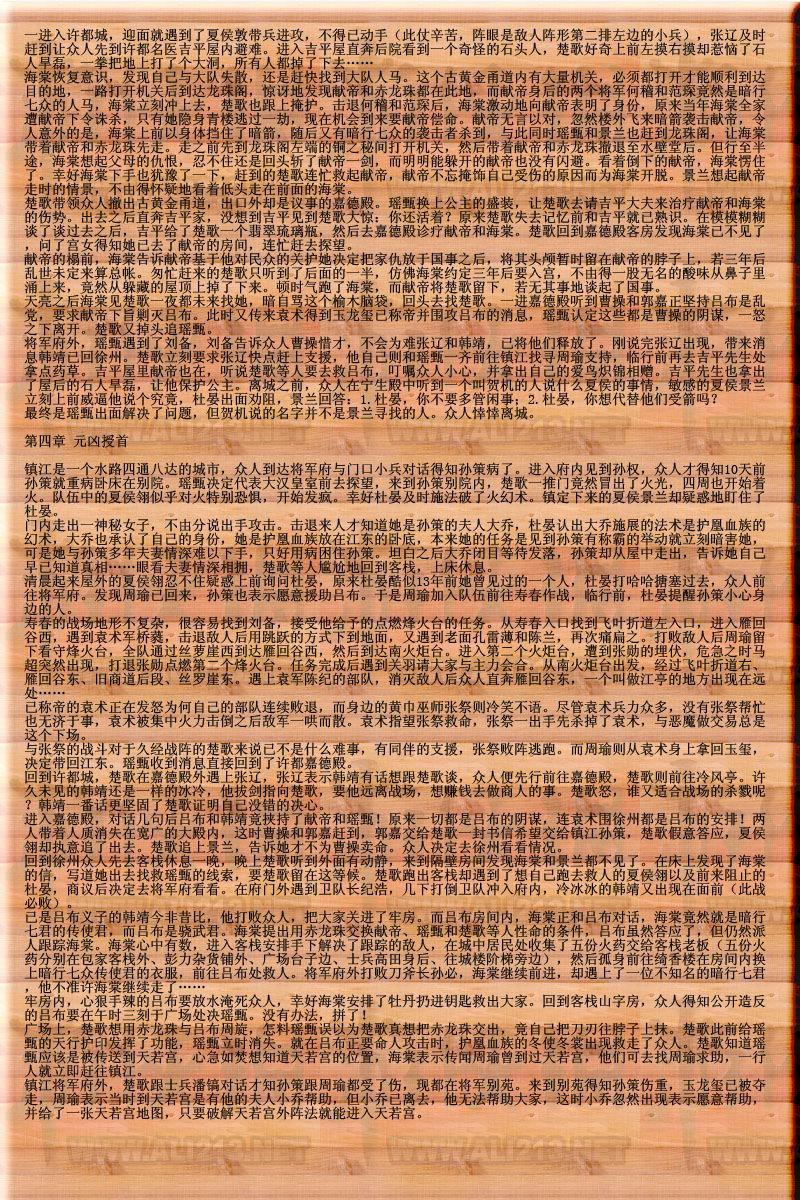 一进入许都城，迎面就遇到了夏侯敦带兵进攻，不得已动手（此仗辛苦，阵眼是敌人阵形第二排左边的小兵），张辽及时
赶到让众人先到许都名医吉平屋内避难。进入吉平屋直奔后院看到一个奇怪的石头人，楚歌好奇上前左摸右摸却惹恼了石
人旱磊，一拳把地上打了个大洞，所有人都掉了下去……
海棠恢复意识，发现自己与大队失散，还是赶快找到大队人马。这个古黄金甬道内有大量机关，必须都打开才能顺利到达
目的地，一路打开机关后到达龙珠阁，惊讶地发现献帝和赤龙珠都在此地，而献帝身后的两个将军何稽和范琛竟然是暗行
七众的人马，海棠立刻冲上去，楚歌也跟上掩护。击退何稽和范琛后，海棠激动地向献帝表明了身份，原来当年海棠全家
遭献帝下令诛杀，只有她隐身青楼逃过一劫，现在机会到来要献帝偿命。献帝无言以对，忽然楼外飞来暗箭袭击献帝，令
人意外的是，海棠上前以身体挡住了暗箭，随后又有暗行七众的袭击者杀到，与此同时瑶甄和景兰也赶到龙珠阁，让海棠
带着献帝和赤龙珠先走。走之前先到龙珠阁左端的铜之秘间打开机关，然后带着献帝和赤龙珠撤退至水壁堂后。但行至半
途，海棠想起父母的仇恨，忍不住还是回头斩了献帝一剑，而明明能躲开的献帝也没有闪避。看着倒下的献帝，海棠愣住
了。幸好海棠下手也犹豫了一下，赶到的楚歌连忙救起献帝，献帝不忘掩饰自己受伤的原因而为海棠开脱。景兰想起献帝
走时的情景，不由得怀疑地看着低头走在前面的海棠。
楚歌带领众人撤出古黄金甬道，出口外却是议事的嘉德殿。瑶甄换上公主的盛装，让楚歌去请吉平大夫来治疗献帝和海棠
的伤势。出去之后直奔吉平家，没想到吉平见到楚歌大惊：你还活着？原来楚歌失去记忆前和吉平就已熟识。在模模糊糊
谈了谈过去之后，吉平给了楚歌一个翡翠琉璃瓶，然后去嘉德殿诊疗献帝和海棠。楚歌回到嘉德殿客房发现海棠已不见了
，问了宫女得知她已去了献帝的房间，连忙赶去探望。
献帝的榻前，海棠告诉献帝基于他对民众的关护她决定把家仇放于国事之后，将其头颅暂时留在献帝的脖子上，若三年后
乱世未定来算总帐。匆忙赶来的楚歌只听到了后面的一半，仿佛海棠约定三年后要入宫，不由得一股无名的酸味从鼻子里
涌上来，竟然从躲藏的屋顶上掉了下来。顿时气跑了海棠，而献帝将楚歌留下，若无其事地谈起了国事。
天亮之后海棠见楚歌一夜都未来找她，暗自骂这个榆木脑袋，回头去找楚歌。一进嘉德殿听到曹操和郭嘉正坚持吕布是乱
党，要求献帝下旨剿灭吕布。此时又传来袁术得到玉龙玺已称帝并围攻吕布的消息，瑶甄认定这些都是曹操的阴谋，一怒
之下离开。楚歌又掉头追瑶甄。
将军府外，瑶甄遇到了刘备，刘备告诉众人曹操惜才，不会为难张辽和韩靖，已将他们释放了。刚说完张辽出现，带来消
息韩靖已回徐州。楚歌立刻要求张辽快点赶上支援，他自己则和瑶甄一齐前往镇江找寻周瑜支持，临行前再去吉平先生处
拿点药草。吉平屋里献帝也在，听说楚歌等人要去救吕布，叮嘱众人小心，并拿出自己的爱鸟炽锦相赠。吉平先生也拿出
了屋后的石人旱磊，让他保护公主。离城之前，众人在宁生殿中听到一个叫贺机的人说什么夏侯的事情，敏感的夏侯景兰
立刻上前威逼他说个究竟，杜晏出面劝阻，景兰回答：1.杜晏，你不要多管闲事；2.杜晏，你想代替他们受箭吗？
最终是瑶甄出面解决了问题，但贺机说的名字并不是景兰寻找的人。众人悻悻离城。
第四章 元凶授首
镇江是一个水路四通八达的城市，众人到达将军府与门口小兵对话得知孙策病了。进入府内见到孙权，众人才得知10天前
孙策就重病卧床在别院。瑶甄决定代表大汉皇室前去探望，来到孙策别院内，楚歌一推门竟然冒出了火光，四周也开始着
火。队伍中的夏侯翎似乎对火特别恐惧，开始发疯。幸好杜晏及时施法破了火幻术。镇定下来的夏侯景兰却疑惑地盯住了
杜晏。
门内走出一神秘女子，不由分说出手攻击。击退来人才知道她是孙策的夫人大乔，杜晏认出大乔施展的法术是护凰血族的
幻术，大乔也承认了自己的身份，她是护凰血族放在江东的卧底，本来她的任务是见到孙策有称霸的举动就立刻暗害她，
可是她与孙策多年夫妻情深难以下手，只好用病困住孙策。坦白之后大乔闭目等待发落，孙策却从屋中走出，告诉她自己
早已知道真相……眼看夫妻情深相拥，楚歌等人尴尬地回到客栈，上床休息。
清晨起来屋外的夏侯翎忍不住疑惑上前询问杜晏，原来杜晏酷似13年前她曾见过的一个人，杜晏打哈哈搪塞过去，众人前
往将军府。发现周瑜已回来，孙策也表示愿意援助吕布。于是周瑜加入队伍前往寿春作战，临行前，杜晏提醒孙策小心身
边的人。
寿春的战场地形不复杂，很容易找到刘备，接受他给予的点燃烽火台的任务。从寿春入口找到飞叶折道左入口，进入雁回
谷西，遇到袁术军桥蕤，击退敌人后用跳跃的方式下到地面，又遇到老面孔雷薄和陈兰，再次痛扁之。打败敌人后周瑜留
下看守烽火台，全队通过丝萝崖西到达雁回谷西，然后到达南火炬台。进入第二个火炬台，遭到张勋的埋伏，危急之时马
超突然出现，打退张勋点燃第二个烽火台。任务完成后遇到关羽请大家与主力会合。从南火炬台出发，经过飞叶折道右、
雁回谷东、旧商道后段、丝罗崖东。遇上袁军陈纪的部队，消灭敌人后众人直奔雁回谷东，一个叫做江亭的地方出现在远
处……
已称帝的袁术正在发怒为何自己的部队连续败退，而身边的黄巾巫师张祭则冷笑不语。尽管袁术兵力众多，没有张祭帮忙
也无济于事，袁术被集中火力击倒之后敌军一哄而散。袁术指望张祭救命，张祭一出手先杀掉了袁术，与恶魔做交易总是
这个下场。
与张祭的战斗对于久经战阵的楚歌来说已不是什么难事，有同伴的支援，张祭败阵逃跑。而周瑜则从袁术身上拿回玉玺，
决定带回江东。瑶甄收到消息直接回到了许都嘉德殿。
回到许都城，楚歌在嘉德殿外遇上张辽，张辽表示韩靖有话想跟楚歌谈，众人便先行前往嘉德殿，楚歌则前往冷风亭。许
久未见的韩靖还是一样的冰冷，他拔剑指向楚歌，要他远离战场，想赚钱去做商人的事。楚歌怒，谁又适合战场的杀戮呢
？韩靖一番话更坚固了楚歌证明自己没错的决心。
进入嘉德殿，对话几句后吕布和韩靖竟挟持了献帝和瑶甄！原来一切都是吕布的阴谋，连袁术围徐州都是吕布的安排！两
人带着人质消失在宽广的大殿内，这时曹操和郭嘉赶到，郭嘉交给楚歌一封书信希望交给镇江孙策，楚歌假意答应，夏侯
翎却执意追了出去。楚歌追上景兰，告诉她才不为曹操卖命。众人决定去徐州看看情况。
回到徐州众人先去客栈休息一晚，晚上楚歌听到外面有动静，来到隔壁房间发现海棠和景兰都不见了。在床上发现了海棠
的信，写道她出去找救瑶甄的线索，要楚歌留在这等候。楚歌跑出客栈却遇到了想自己跑去救人的夏侯翎以及前来阻止的
杜晏，商议后决定去将军府看看。在府门外遇到卫队长纪浩，几下打倒卫队冲入府内，冷冰冰的韩靖又出现在面前（此战
必败）。
已是吕布义子的韩靖今非昔比，他打败众人，把大家关进了牢房。而吕布房间内，海棠正和吕布对话，海棠竟然就是暗行
七君的传使君，而吕布是骁武君。海棠提出用赤龙珠交换献帝、瑶甄和楚歌等人性命的条件，吕布虽然答应了，但仍然派
人跟踪海棠。海棠心中有数，进入客栈安排手下解决了跟踪的敌人，在城中居民处收集了五份火药交给客栈老板（五份火
药分别在包家客栈外、彭力杂货铺外、广场台子边、士兵高田身后、往城楼阶梯旁边），然后孤身前往绮香楼在房间内换
上暗行七众传使君的衣服，前往吕布处救人。将军府外打败刀斧长孙必，海棠继续前进，却遇上了一位不知名的暗行七君
，他不准许海棠继续走了……
牢房内，心狠手辣的吕布要放水淹死众人，幸好海棠安排了牡丹扔进钥匙救出大家。回到客栈山字房，众人得知公开造反
的吕布要在午时三刻于广场处决瑶甄。没有办法，拼了！
广场上，楚歌想用赤龙珠与吕布周旋，怎料瑶甄误以为楚歌真想把赤龙珠交出，竟自己把刀刃往脖子上抹。楚歌此前给瑶
甄的天行护印发挥了功能，瑶甄立时消失。就在吕布正要命人攻击时，护凰血族的冬使冬裳出现救走了众人。楚歌知道瑶
甄应该是被传送到天若宫，心急如焚想知道天若宫的位置，海棠表示传闻周瑜曾到过天若宫，他们可去找周瑜求助，一行
人就立即赶往镇江。
镇江将军府外，楚歌跟士兵潘镐对话才知孙策跟周瑜都受了伤，现都在将军别苑。来到别苑得知孙策伤重，玉龙玺已被夺
走，周瑜表示当时到天若宫是有他的夫人小乔帮助，但小乔已离去，他无法帮助大家，这时小乔忽然出现表示愿意帮助，
并给了一张天若宫地图，只要破解天若宫外阵法就能进入天若宫。